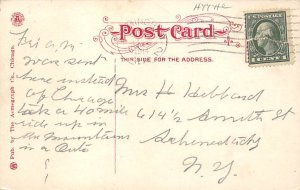 Post Card
THIS SIDE FOR THE ADDRESS.
Pub. by The Acmegraph Co., Chicago.
Fri a.m.
were sent
here instead
of Chicago
take a 40 mile
ride up in
the mountains
in a Auto
Mrs H Hubbard
614½ Smith St
Schenectady
N.Y.